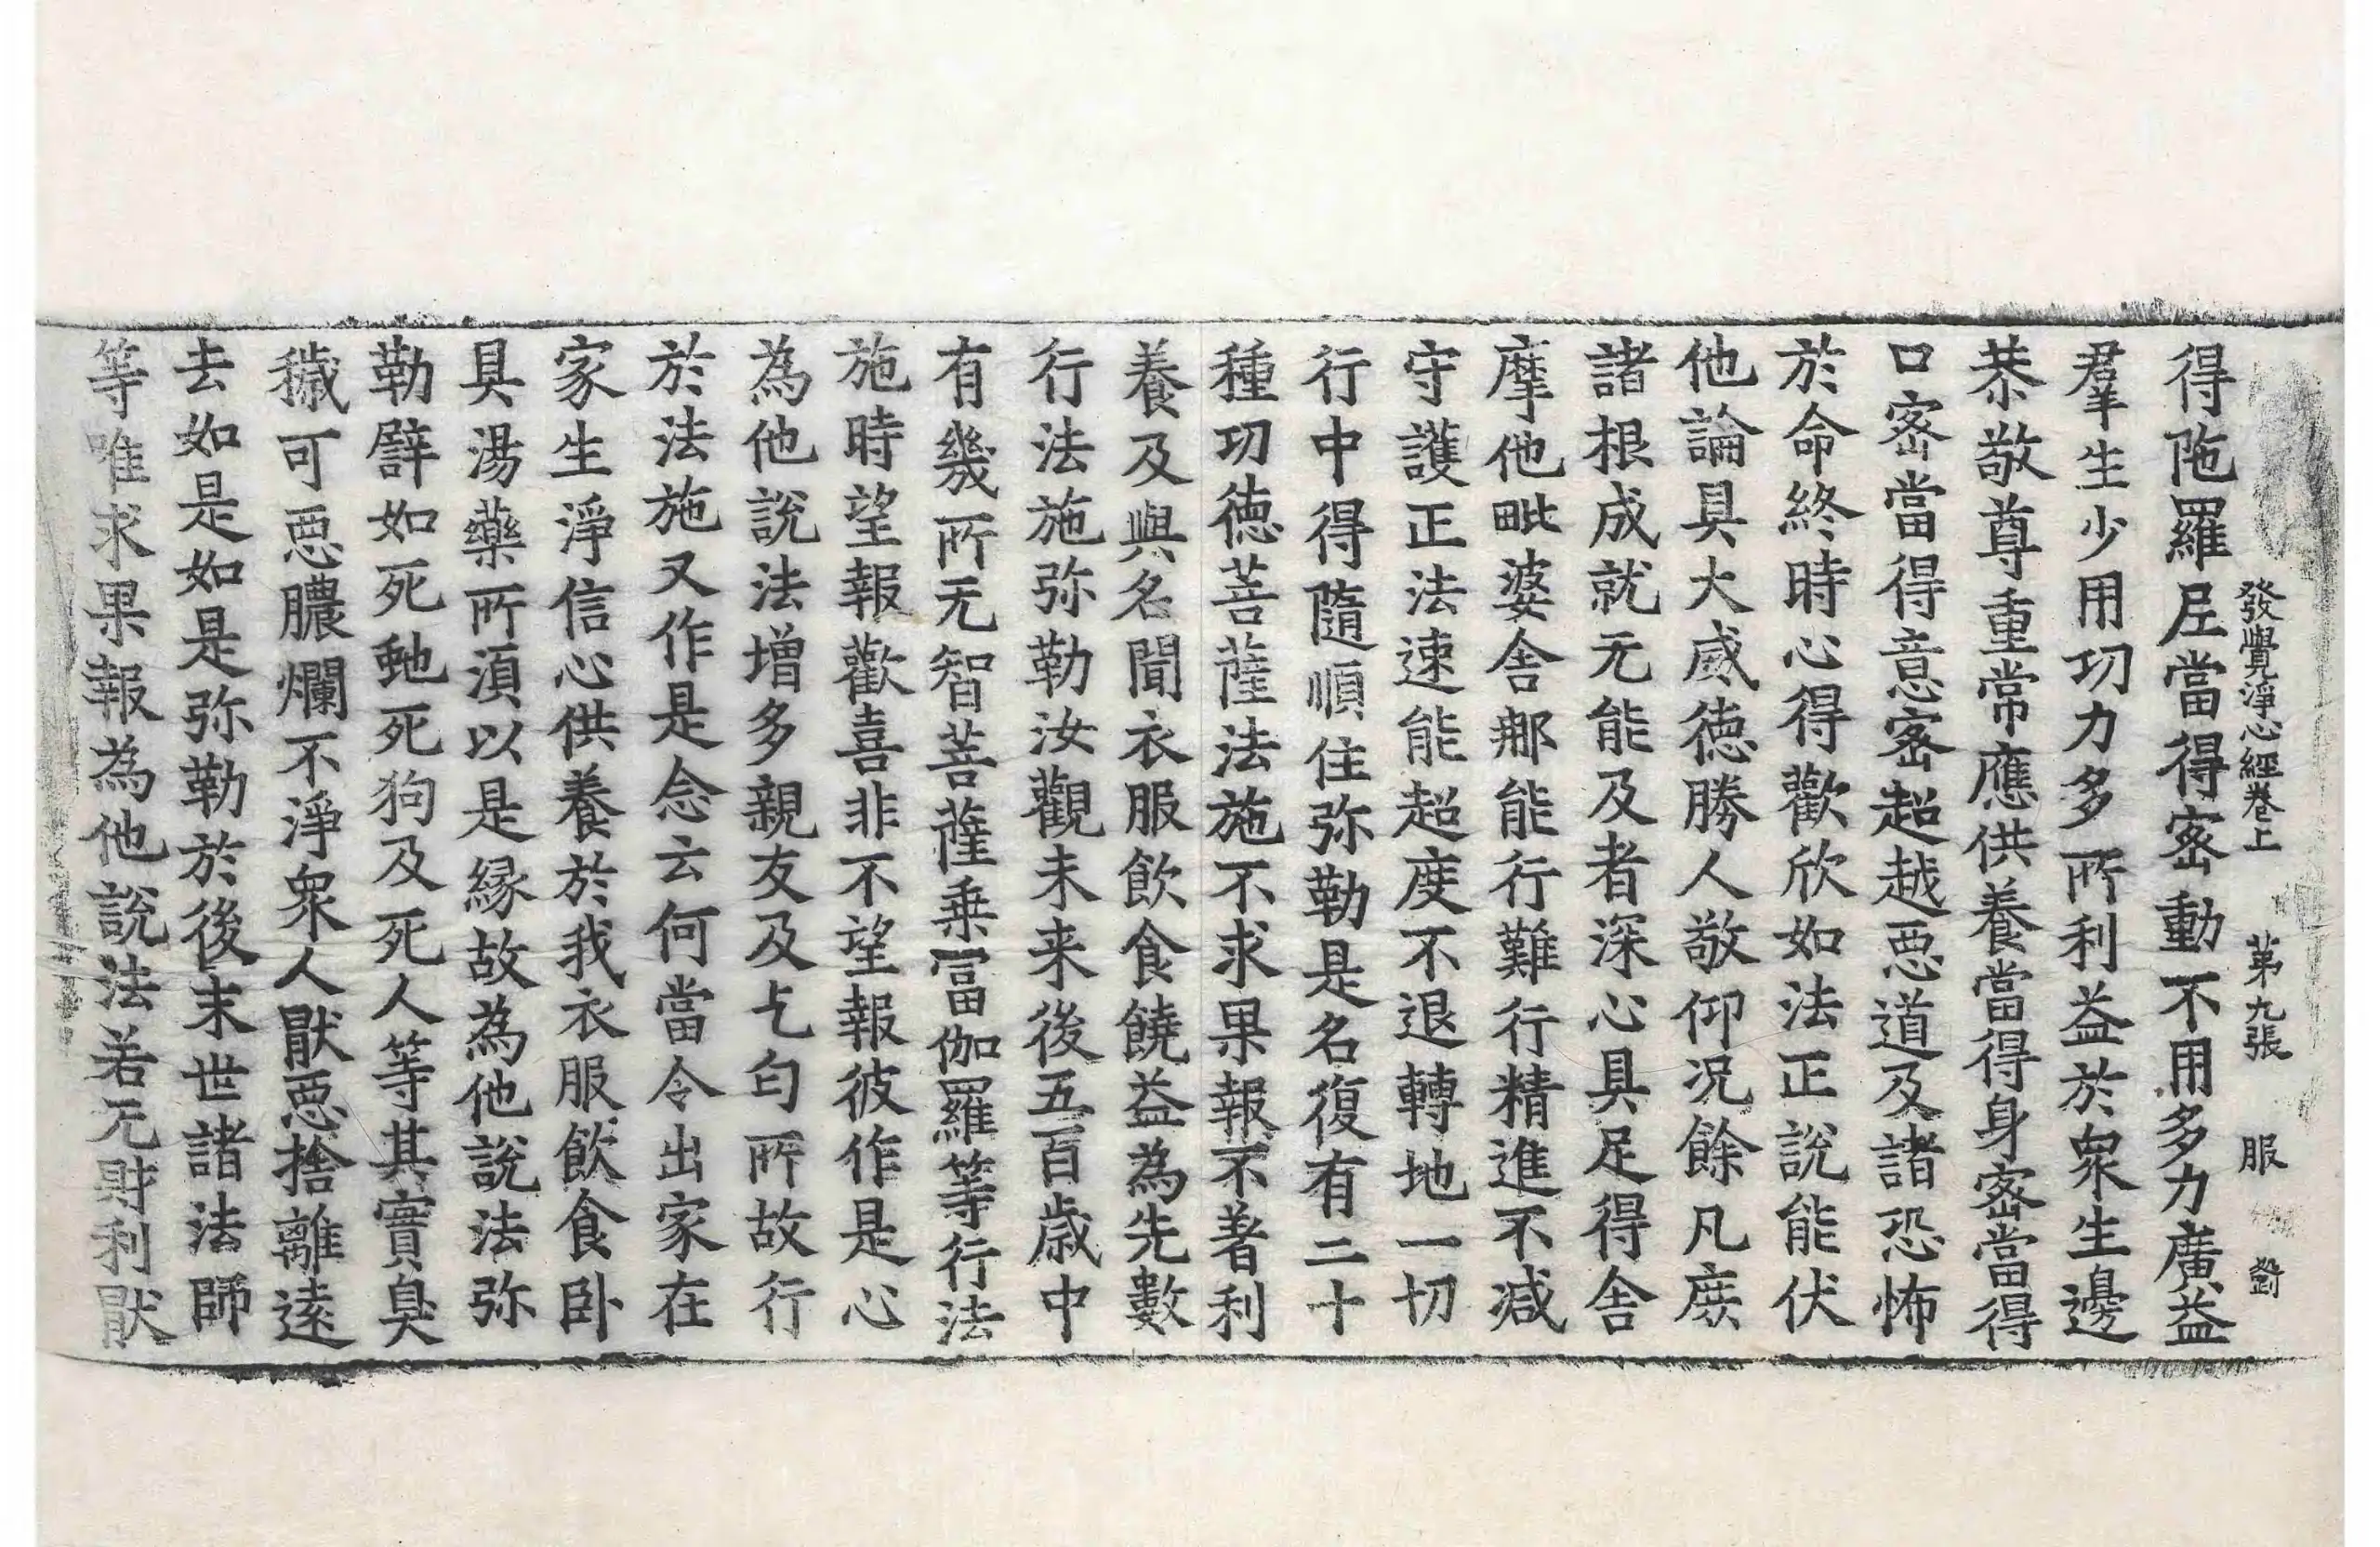 發覺淨心經卷上 第九張 服 劉
得陁羅尼當得密動不用多力廣益
羣生少用功力多所利益於衆生邊
恭敬尊重常應供養當得身密當得
口密當得意密超越惡道及諸恐怖
於命終時心得歡欣如法正說能伏
他論具大威德勝人敬仰況餘凡庶
諸根成就无能及者深心具足得舍
摩他毗婆舍那能行難行精進不減
守護正法速能超度不退轉地一切
行中得隨順住弥勒是名復有二十
種功德菩薩法施不求果報不著利
養及與名聞衣服飲食饒益為先數
行法施弥勒汝觀未来後五百歲中
有幾所无智菩薩乗富伽羅等行法
施時望報歡喜非不望報彼作是心
為他說法增多親友及乞匄所故行
於法施又作是念云何當令出家在
家生淨信心供養於我衣服飲食卧
具湯藥所湏以是緣故為他說法弥
勒譬如死虵死狗及死人等其實臭
穢可惡膿爛不淨衆人猒惡捨離遠
去如是如是弥勒於後末世諸法師
等唯求果報為他說法若无財利猒